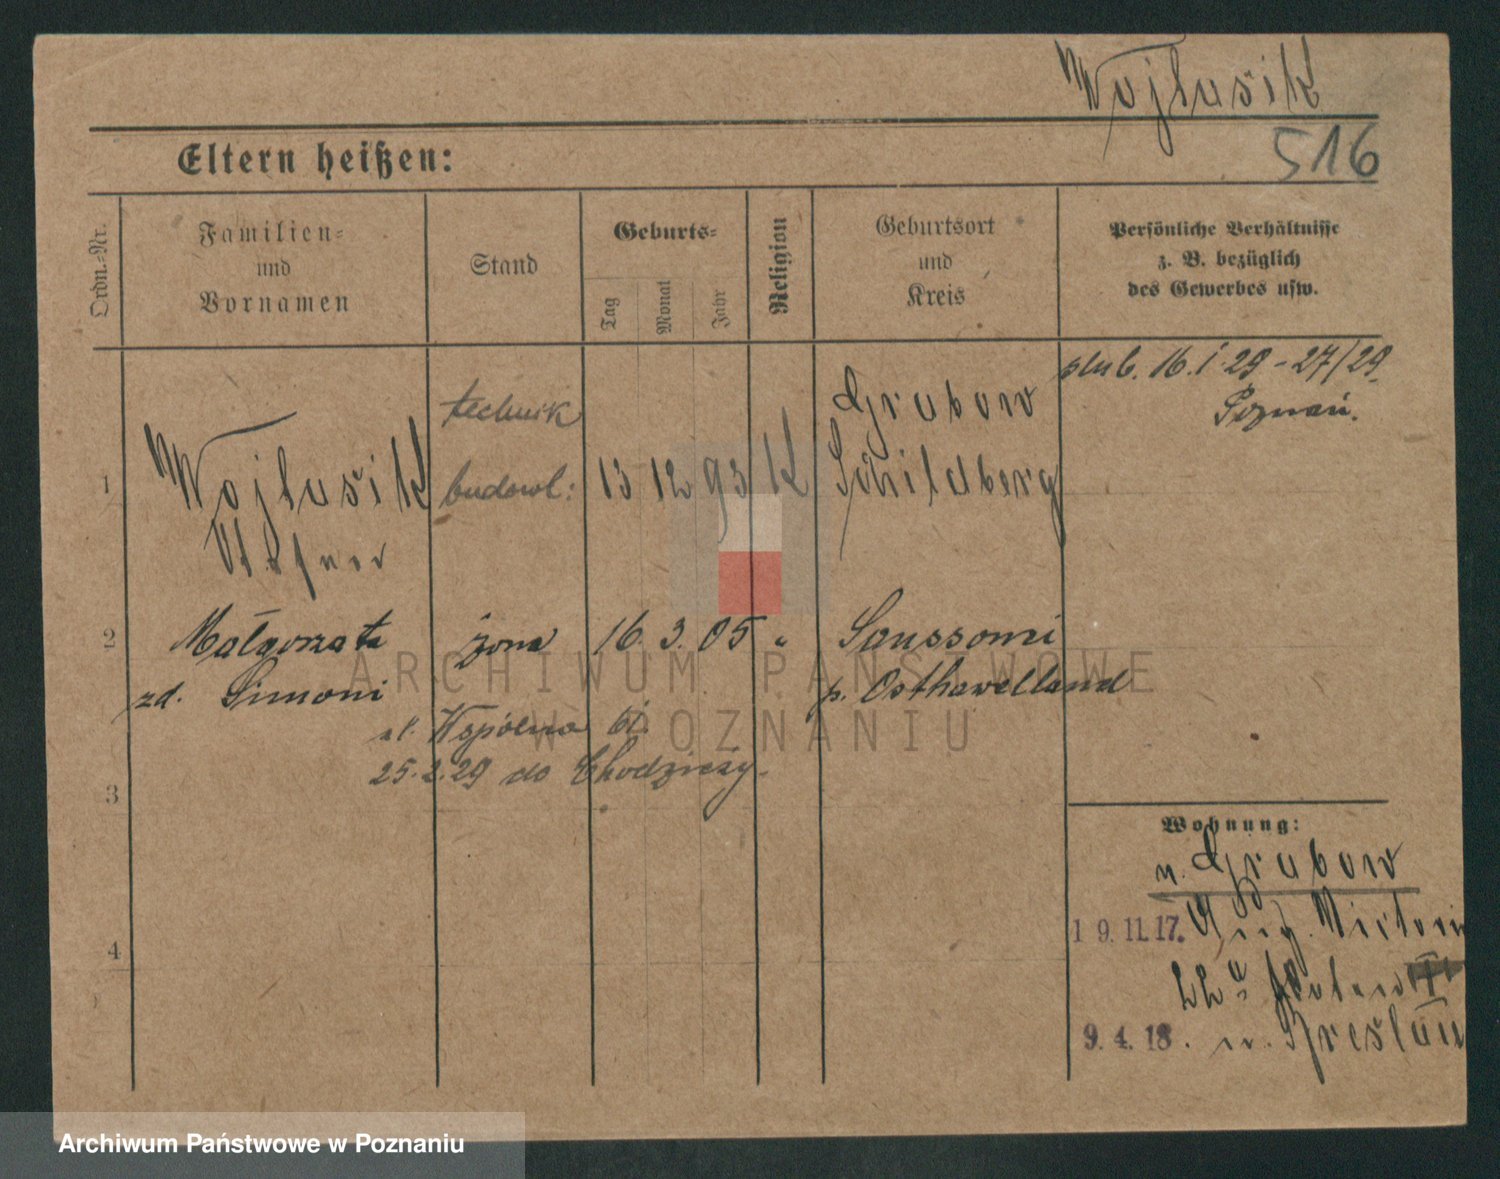 Wojtusik
516
Eltern heißen:
Ordn.-Nr.
Familien-
und
Vornamen
Stand
Geburts-
Tag
Monat
Jahr
Religion
Geburtsort
und
Kreis
Persönliche Verhältnisse
z. B. bezüglich
des Gewerbes usw.
ślub. 16.1.29 - 27/29
Poznań.
1
Wojtusik
technik
budowl:
13 12 93 K
Grabow
Schildberg
2
Małgorzata żona 16. 3. 05 "
Sanssouci
zd. Simoni
p. Osthavelland
ul. Wspólna 61.
25.2.29 do Chodzieży.
3
4
Wohnung:
n. Grabow
19.11.17. Aug. Victoria
22
9.4.18. n. Breslau
ARCHIWUM PAŃSTWOWE
W POZNANIU
Archiwum Państwowe w Poznaniu